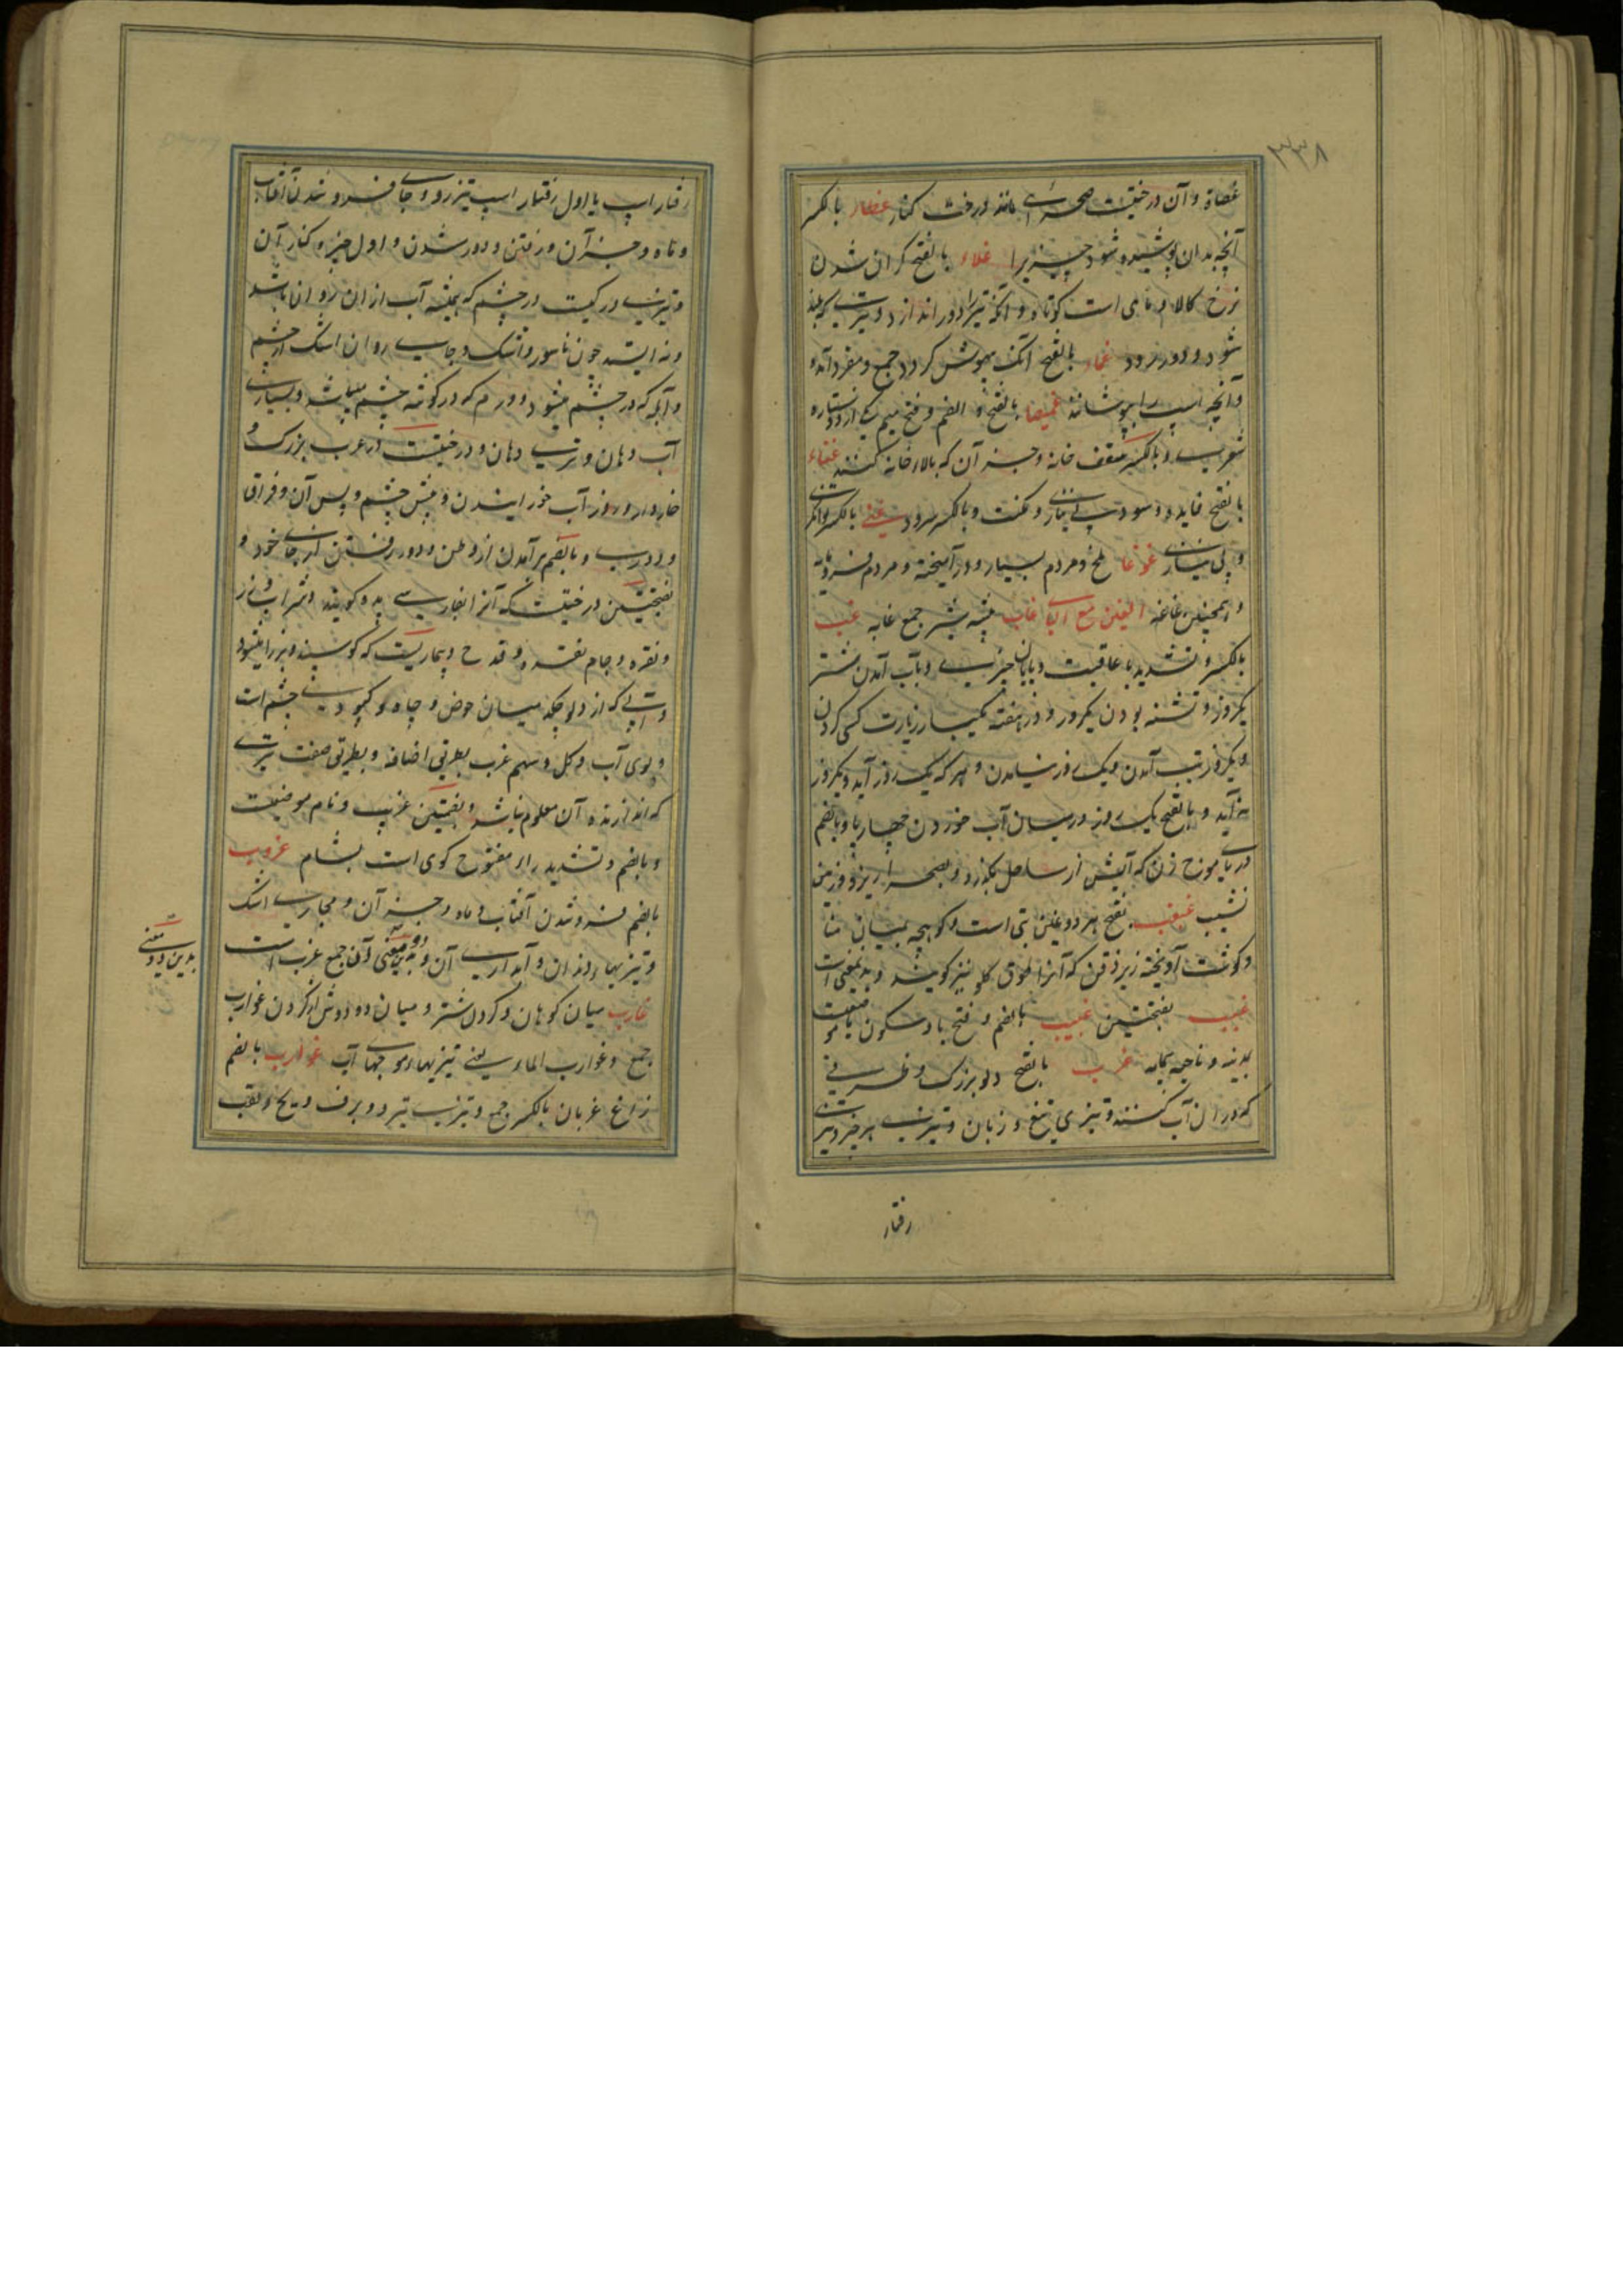 ۳۳۸
غضاة و آن درختیست صحرائی مانند درخت کنار غطاء بالکسر
آنچه بدان پوشیده شود چیزیرا غلاء بالفتح گران شدن
نرخ کالا و ماهی است کوتاه و آنکه تیر را دور اندازد و تیری که بلند
شود و دور رود غماء بالفتح آنکه بیهوش گردد جمع و مفرد آمده
و آنچه اسپ را بپوشانند غمیصاء بالفتح و الضم و فتح میم یکی از دو ستاره
شعری و بالکسر سقف خانه و جز آن که بالاء خانه کنند غناء
بالفتح فایده و سود و بی نیازی و مکنت و بالکسر سرود غنی بالکسر توانگری
و بی نیازی غوغا ملخ و مردم بسیار و درآمیخته و مردم فرومایه
و همچنین غاغه الغین مع الباء غاب بیشه شیر جمع غابه غب
بالکسر و تشدید با عاقبت و پایان چیزی و بآب آمدن شتر
یکروز و تشنه بودن یکروز و در هفته یکبار زیارت کسی کردن
و یکروز تب آمدن و یک روز نیامدن و هر که یک روز آید و یکروز
نه آید و بالفتح یک روز در میان آب خوردن چهارپا و بالضم
دریا موج زن که آبش از ساحل بگذرد و بصحرا ریزد و زمین
نشیب غبغب بفتح هر دو غین بتی است و کوهچه بمیان منا
و گوشت آویخته زیر ذقن که آنرا طوق گلو نیز گویند و بدینمعنی است
غبب بفتحتین غبیب بالضم و فتح با و سکون یا موضعیست
بمدینه و ناحیه بیمامه غرب بالفتح دلو بزرگ و ظرفی
که در آن آب کشند و تیزی تیغ و زبان و تیزی هر چیز و تیزی
رفتار
رفتار اسپ یا اول رفتار اسپ تیزرو و جای فرو شدن آفتاب
و ماه و جز آن و رفتن و دور شدن و اول چیز و کنار آن
و تیزی و رگیست در چشم که همیشه آب از ان روان باشد
و نه ایستد چون ناسور و اشک و جای روان اشک از چشم
و آبله که در چشم میشود و ورم که در گوشه چشم میباشد و بسیاری
آب دهان و تری دهان و درختیست در عرب بزرگ و
خاردار و روز آب خورانیدن و پیش چشم و پس آن و فراق
و دوری و بالضم برآمدن از وطن و دور رفتن از جای خود و
بفتحتین درختیست که آنرا بفارسی پده گویند و شراب و زر
و نقره و جام نقره و قدح و بیماریست که گوسپند و بز را میشود
و آبی که از دلو چکد میان حوض و چاه و کبودی چشم است
و بوی آب و گل و سهم غرب بطریق اضافه و بطریق صفت تیری
که اندازنده آن معلوم نباشد و بضمتین غریب و نام موضعیست
و بالضم و تشدید راء مفتوح کوی است بشام غروب
بالضم فرو شدن آفتاب و ماه و جز آن و مجاری اشک
و تیزیهاء دندان و آبداری آن و بدین دو معنی آن جمع غرب است
غارب میان کوهان و گردن شتر و میان دو دوش از گردن غوارب
جمع و غوارب الماء یعنی تیزیهاء موجهای آب غراب بالضم
زاغ غربان بالکسر جمع و تیزی تبر و برف و یخ و لقب
بدین دو معنی